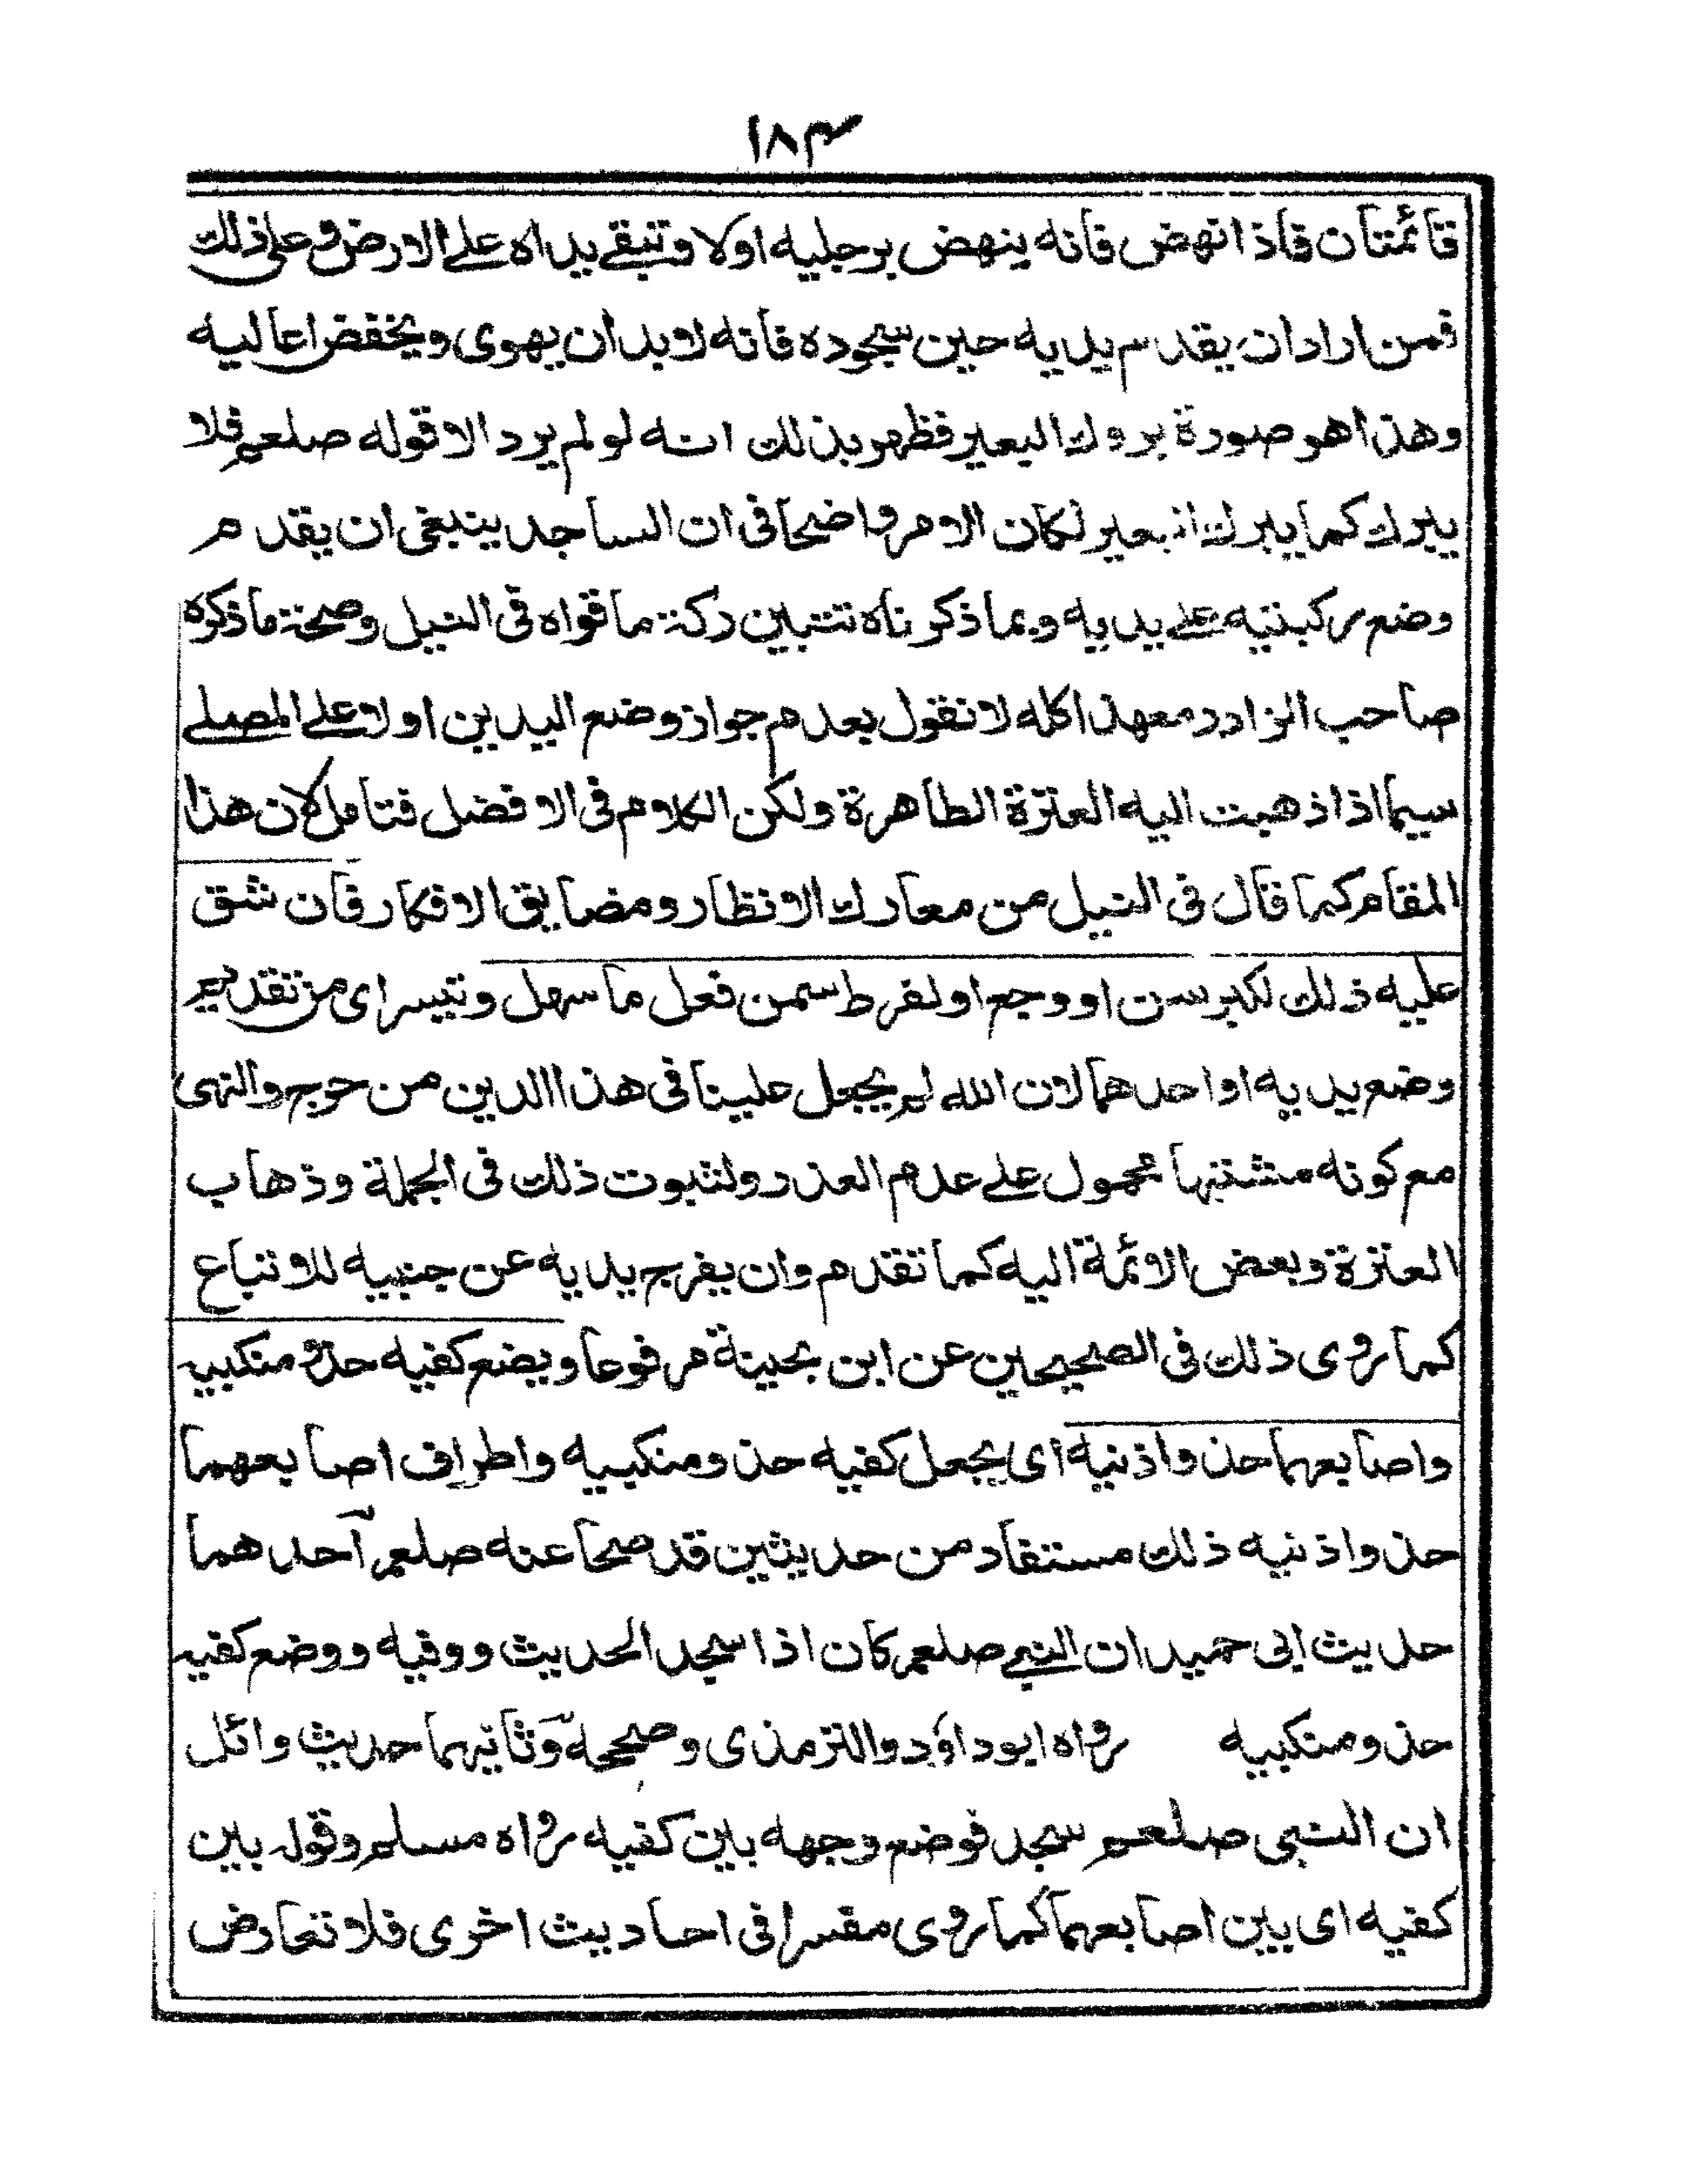 ١٨٣
قائمتان فاذا نهض فانه ينهض برجليه اولا وتبقے يداه علے الارض وعلى ذلك
فمن ارادان يقدم يديه حين سجوده فانه لابدان يهوى ويخفض اعاليه
وهذا هو صورة بروك البعير فظهر بذلك انه لو لم يرد الا قوله صلعم فلا
يبرك كما يبرك البعير لكان الامر واضحا فى ان الساجد ينبغى ان يقدم
وضع ركبتيه علے يديه وبما ذكرناه تتبين ركة ما قواه فى النيل وصحة ماذكره
صاحب الزاد ومعهذا كله لا نقول بعدم جواز وضع اليدين اولا علے المصلے
سيما اذا ذهبت اليه العترة الطاهرة ولكن الكلام فى الافضل فتامل لان هذا
المقام كما قال فى النيل من معارك الانظار ومضايق الافكار فان شق
عليه ذلك لكبر سن او وجع او لفرط سمن فعل ما سهل وتيسر اى من تقديم
وضع يديه او احدهما لان الله لم يجعل علينا فى هذا الدين من حرج والنهى
مع كونه مشتبها محمول علے عدم العذر ولثبوت ذلك فى الجملة وذهاب
العترة وبعض الائمة اليه كما تقدم وان يفرج يديه عن جنبيه للاتباع
كما روى ذلك فى الصحيحين عن ابن بحينة مرفوعا ويضع كفيه حذو منكبيه
واصابعهما حذو اذنيه اى يجعل كفيه حذو منكبيه واطراف اصابعهما
حذو اذنيه ذلك مستفاد من حديثين قد صحا عنه صلعم احدهما
حديث ابى حميد ان النبے صلعم كان اذا سجد الحديث ووفيه ووضع كفيه
حذو منكبيه رواه ابوداؤد والترمذى وصححه وثانيهما حديث وائل
ان النبى صلعم سجد فوضع وجهه بين كفيه رواه مسلم وقوله بين
كفيه اى بين اصابعهما كما روى مفسرا فى احاديث اخرى فلا تعارض